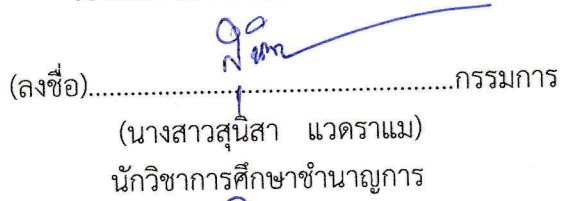 (ลงชื่อ)......................................................กรรมการ
(นางสาวสุนิสา แวดราแม)
นักวิชาการศึกษาชำนาญการ